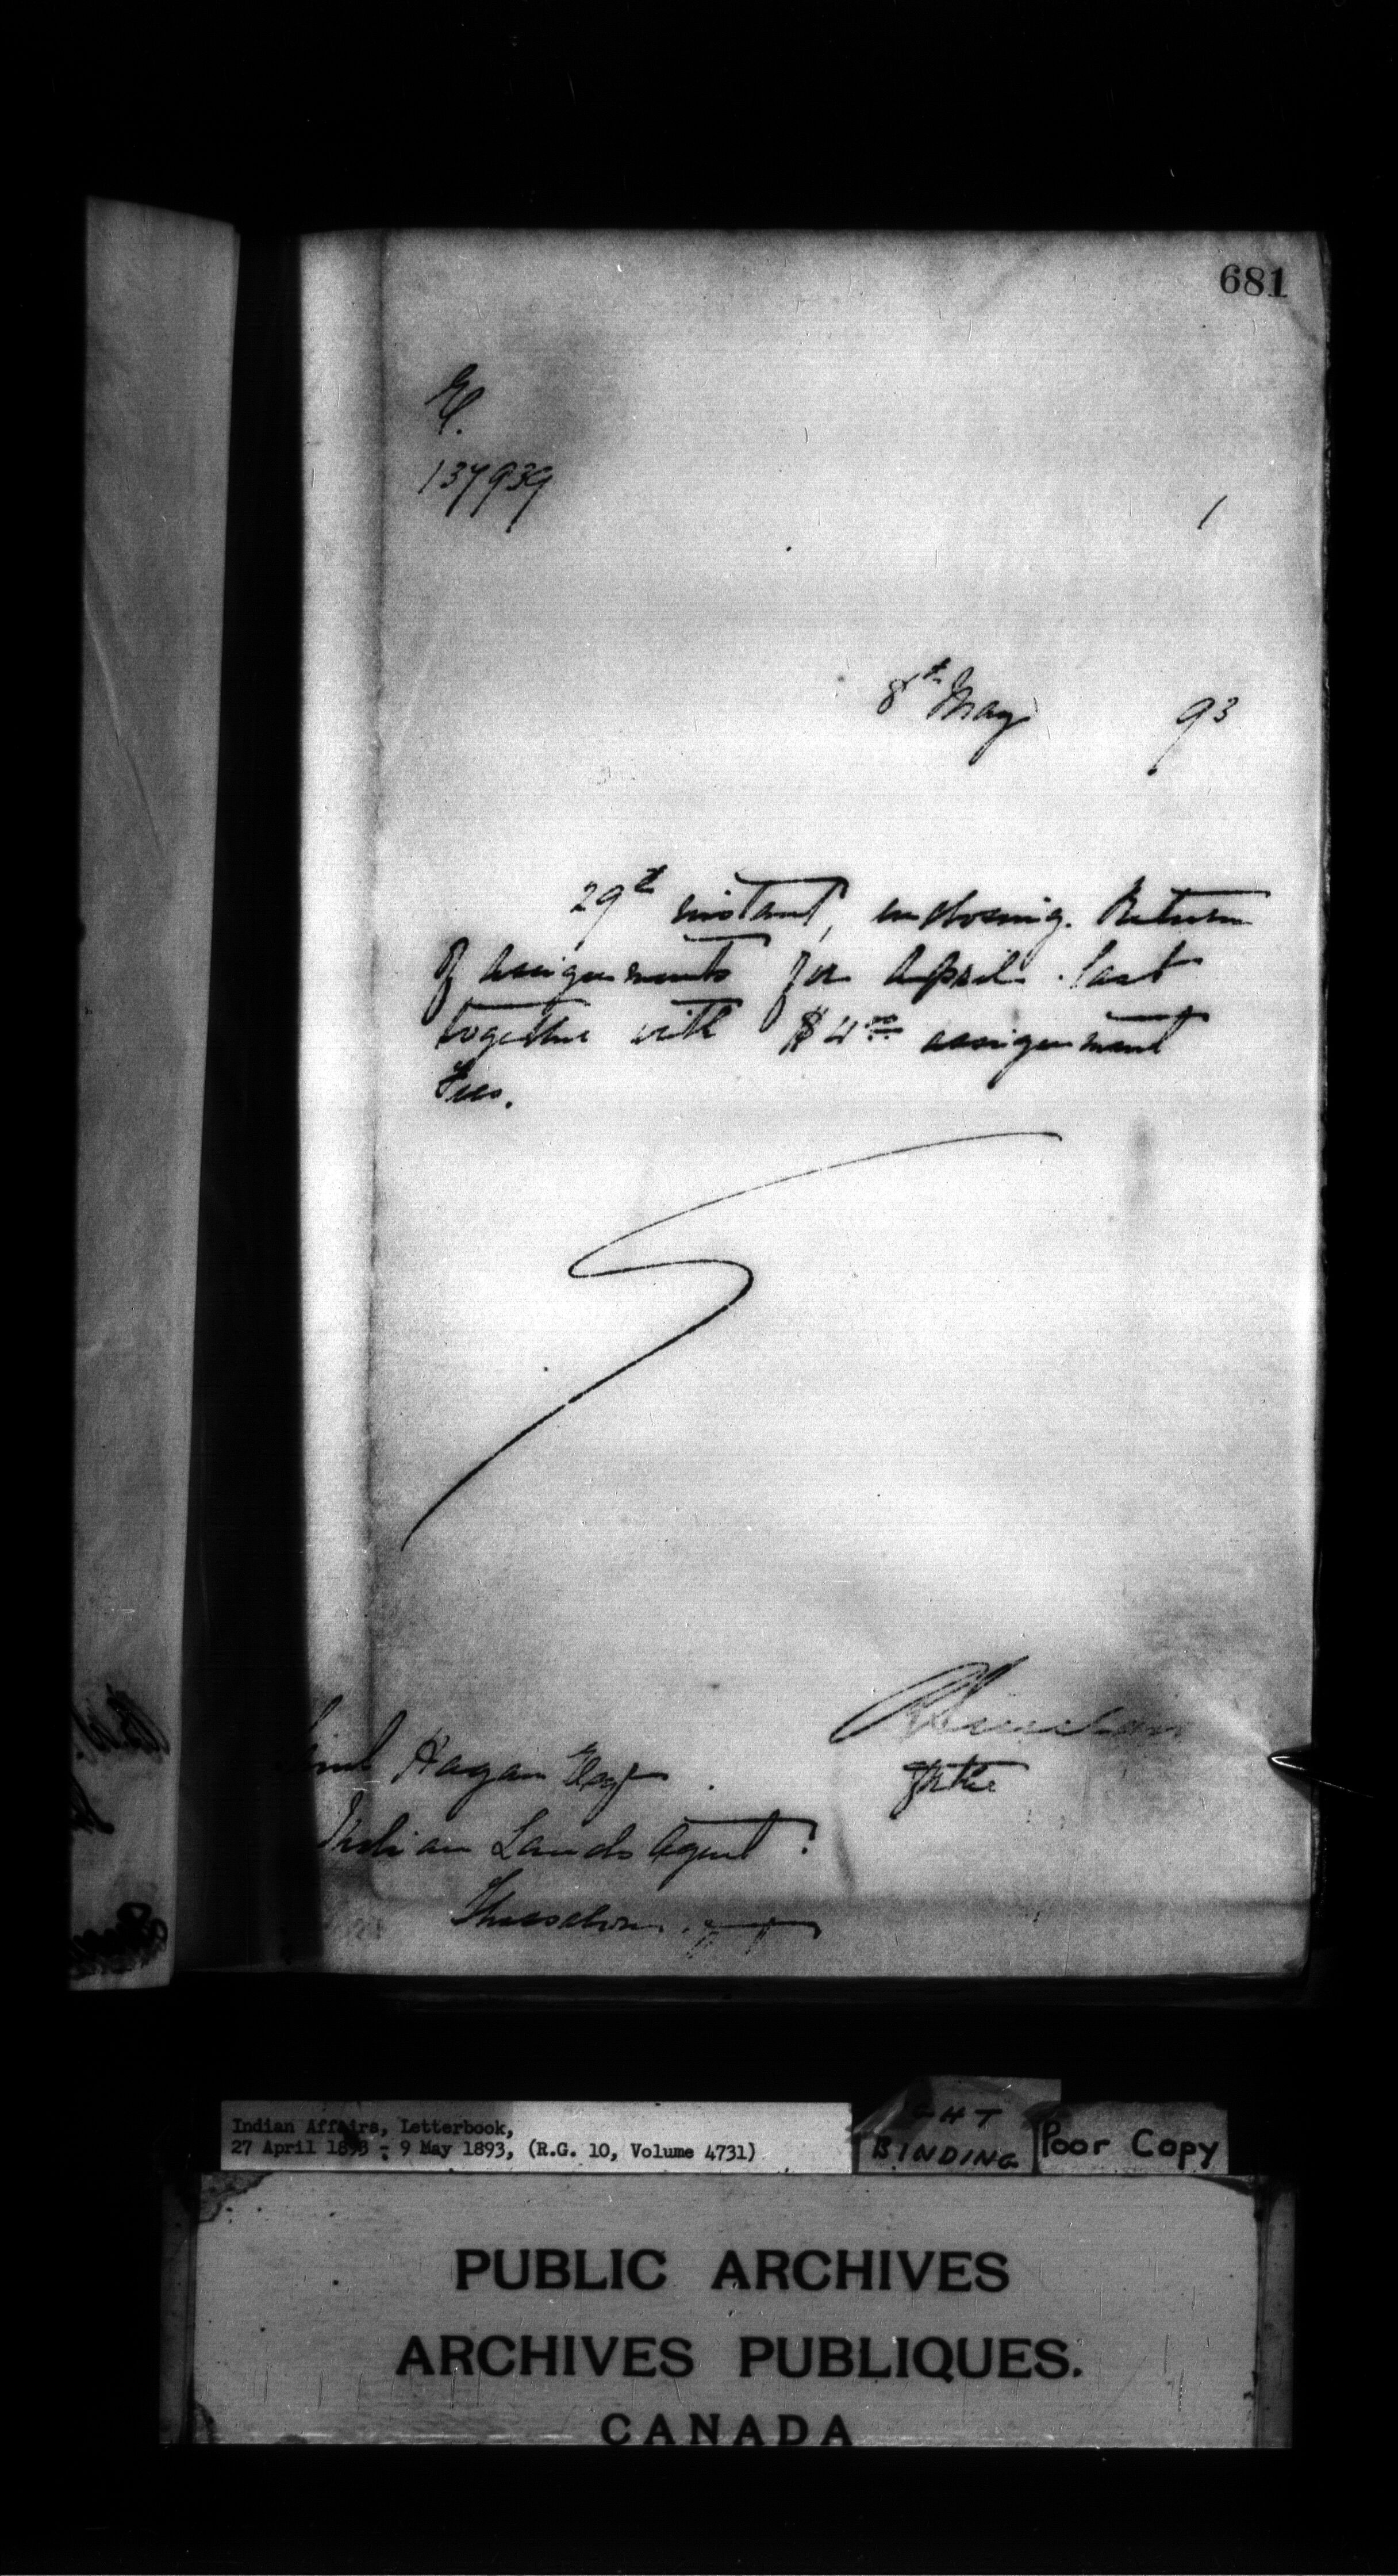 681
E.
137939
8th May 93
29th instant, enclosing Return
of assignments for April last
together with $4.00 assignment
Fees.
Saml Hagan Esqr
for the
Indian Lands Agent
Thessalon
Indian Affairs, Letterbook,
27 April 1893 - 9 May 1893, (R.G. 10, Volume 4731)
BINDING
Poor Copy
PUBLIC ARCHIVES
ARCHIVES PUBLIQUES.
CANADA